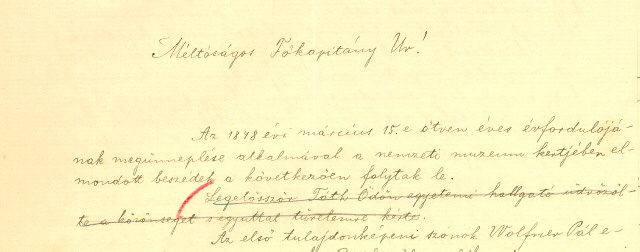 Méltóságos Főkapitány Ur!
Az 1848 évi március 15.e ötven éves évforduló já-
nak megünneplése alkalmával a nemzeti muzeum kertjében el-
mondott beszédek a következően folytak le.
Legelősször Tóth Ödön egyetemi hallgató üdvözöl-
te a közönséget s egyuttal türelemre kérte.
Az első tulajdonképeni szónok Wolfner Pál e-